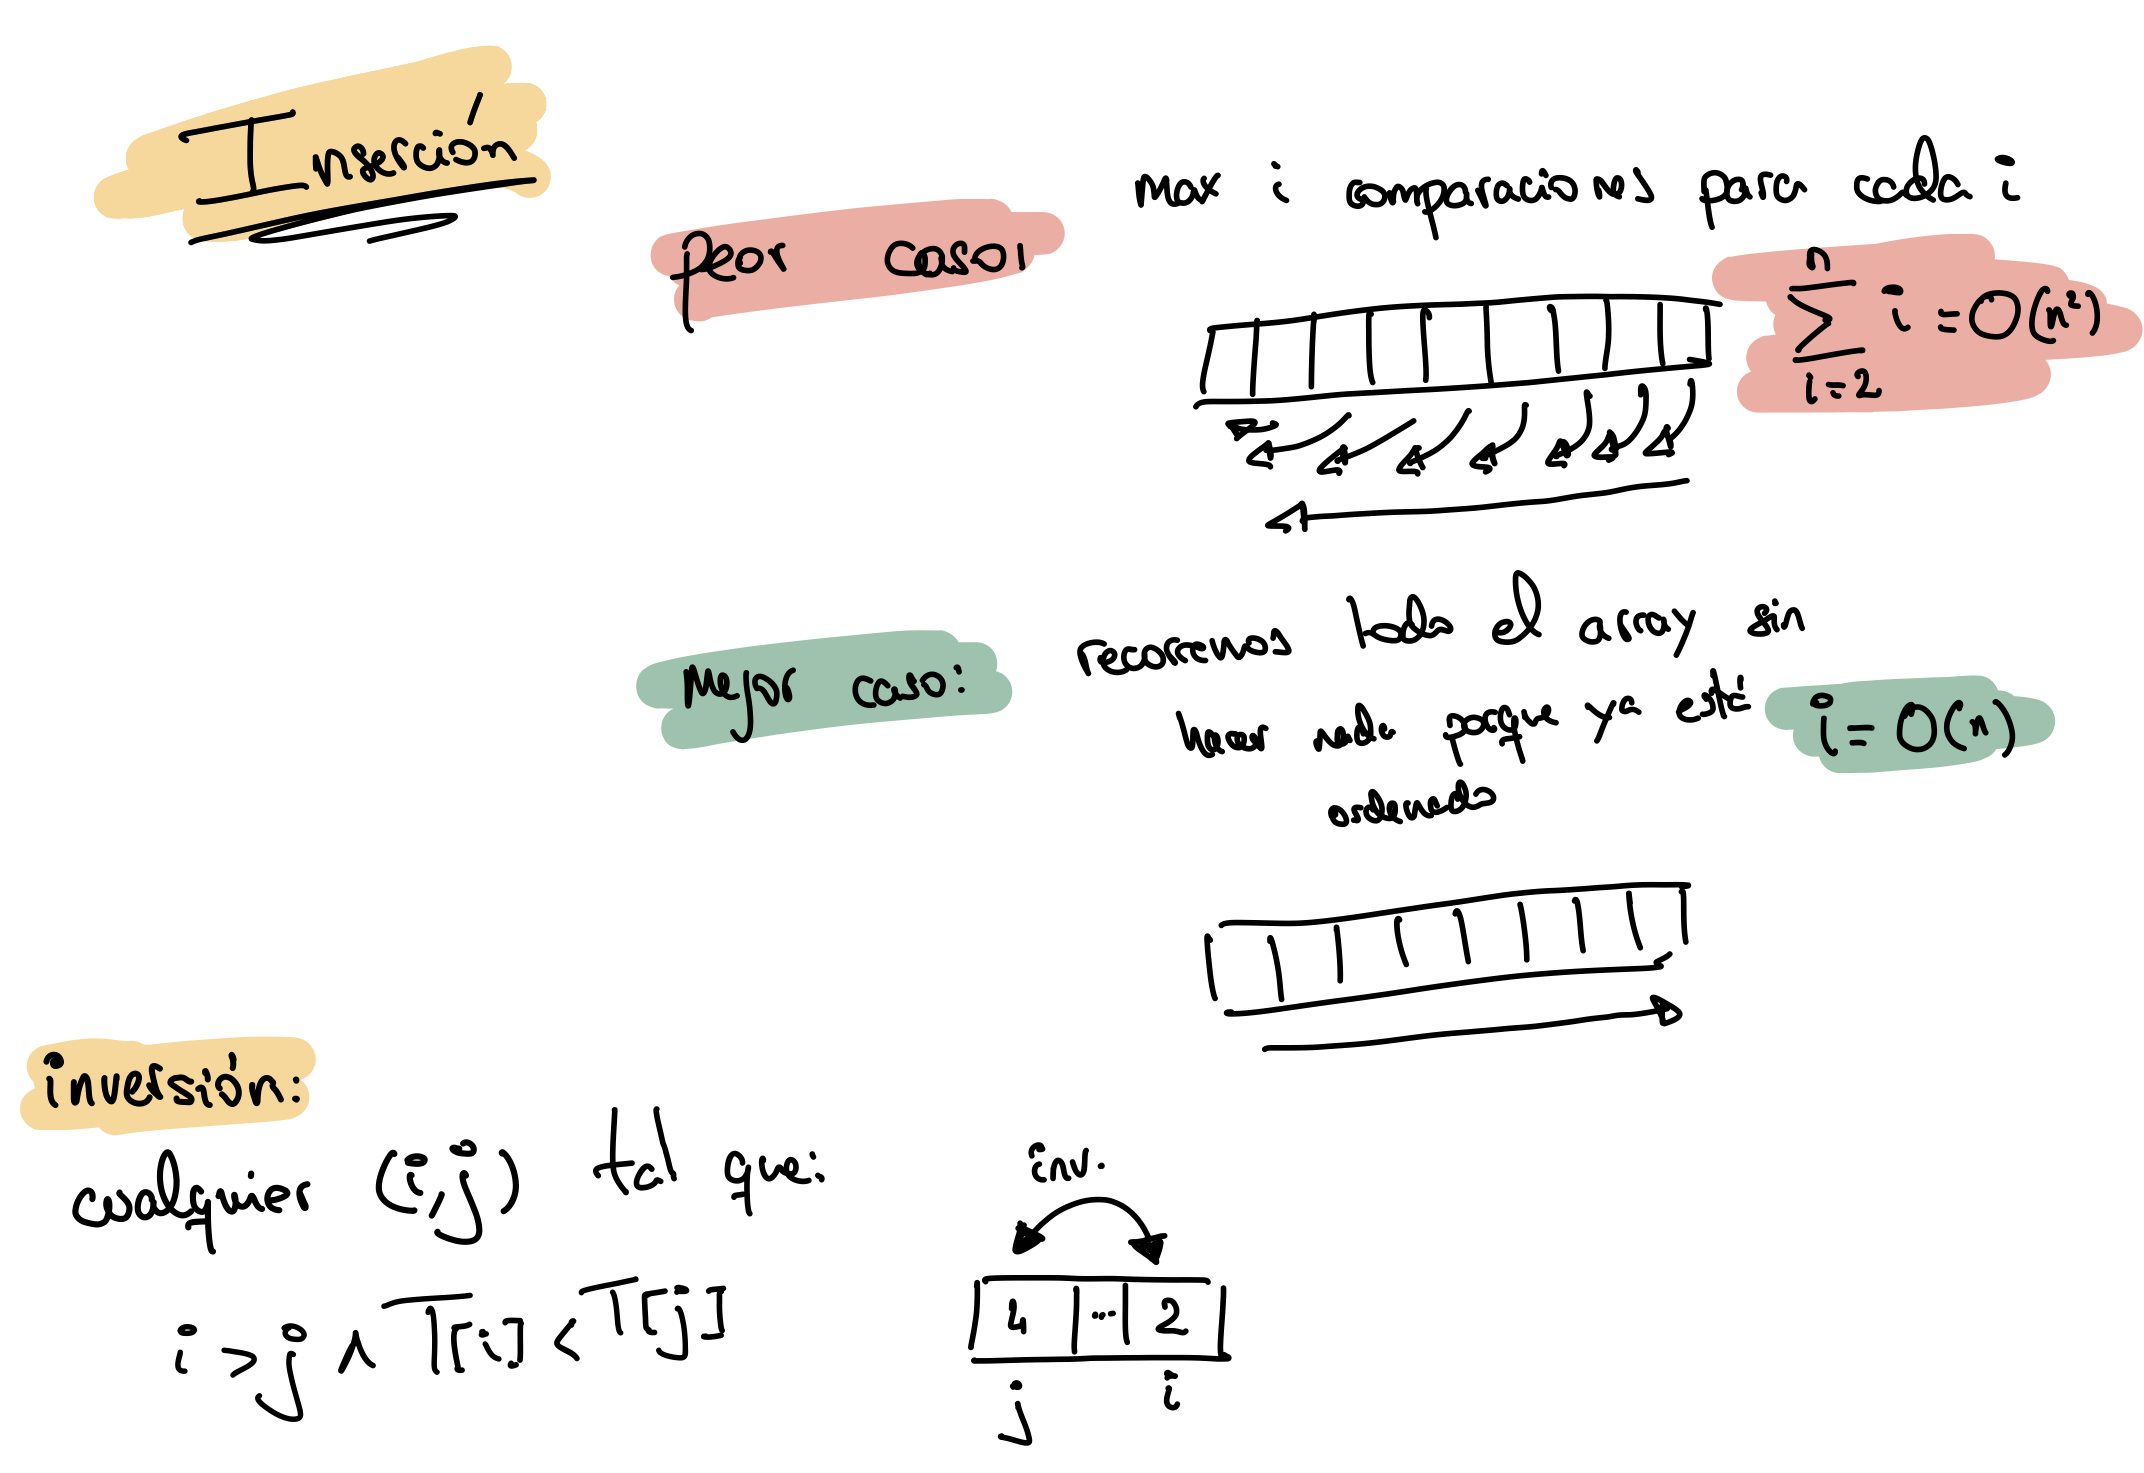 Inserción
peor caso:
max i comparaciones para cada i
n
∑ i = O(n²)
i=2
Mejor caso:
recorremos todo el array sin
hacer nada porque ya está
ordenado
i = O(n)
inversión:
cualquier (i,j) tal que:
i > j ∧ T[i] < T[j]
inv.
4 ... 2
j i